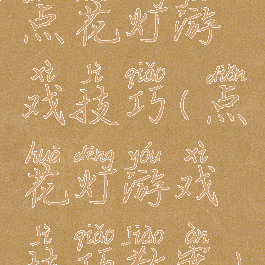 点花灯游
xì jì qiǎo diǎn
戏技巧(点
huā dēng yóu xì
花灯游戏
jì qiǎo jiào àn
技巧教案)